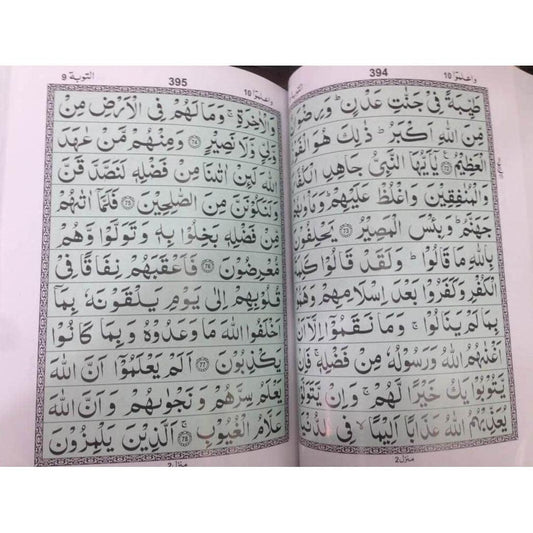 394
واعلموا 10
طَيِّبَةً فِي جَنّٰتِ عَدْنٍ ؕ وَرِضْ
مِّنَ اللّٰهِ اَكْبَرُ ؕ ذٰلِكَ هُوَ الْفَ
الْعَظِيْمُ ﴿۷۲﴾ يٰۤاَيُّهَا النَّبِيُّ جَاهِدِ الْكُفَّا
وَالْمُنٰفِقِيْنَ وَاغْلُظْ عَلَيْهِمْ ؕ وَمَاْوٰىهُ
جَهَنَّمُ ؕ وَبِئْسَ الْمَصِيْرُ ﴿۷۳﴾ يَحْلِفُوْنَ
بِاللّٰهِ مَا قَالُوْا ؕ وَلَقَدْ قَالُوْا كَلِمَ
الْكُفْرِ وَكَفَرُوْا بَعْدَ اِسْلَامِهِمْ وَهَمُّ
بِمَا لَمْ يَنَالُوْا ۚ وَمَا نَقَمُوْۤا اِلَّاۤ اَنْ
اَغْنٰىهُمُ اللّٰهُ وَرَسُوْلُهٗ مِنْ فَضْلِهٖ ۚ فَاِنْ
يَّتُوْبُوْا يَكُ خَيْرًا لَّهُمْ ۚ وَاِنْ يَّتَوَلَّوْ
يُعَذِّبْهُمُ اللّٰهُ عَذَابًا اَلِيْمًا ۙ فِي الدُّنْيَا
منزل 2
التوبة 9
395
واعلموا 10
وَالْاٰخِرَةِ ۚ وَمَا لَهُمْ فِي الْاَرْضِ مِنْ
وَّلِيٍّ وَّلَا نَصِيْرٍ ﴿۷۴﴾ وَمِنْهُمْ مَّنْ عٰهَدَ
اللّٰهَ لَئِنْ اٰتٰىنَا مِنْ فَضْلِهٖ لَنَصَّدَّقَنَّ
وَلَنَكُوْنَنَّ مِنَ الصّٰلِحِيْنَ ﴿۷۵﴾ فَلَمَّاۤ اٰتٰىهُمْ
مِّنْ فَضْلِهٖ بَخِلُوْا بِهٖ وَتَوَلَّوْا وَّهُمْ
مُّعْرِضُوْنَ ﴿۷۶﴾ فَاَعْقَبَهُمْ نِفَاقًا فِيْ
قُلُوْبِهِمْ اِلٰى يَوْمِ يَلْقَوْنَهٗ بِمَاۤ
اَخْلَفُوا اللّٰهَ مَا وَعَدُوْهُ وَبِمَا كَانُوْا
يَكْذِبُوْنَ ﴿۷۷﴾ اَلَمْ يَعْلَمُوْۤا اَنَّ اللّٰهَ
يَعْلَمُ سِرَّهُمْ وَنَجْوٰىهُمْ وَاَنَّ اللّٰهَ
عَلَّامُ الْغُيُوْبِ ﴿۷۸﴾ اَلَّذِيْنَ يَلْمِزُوْنَ
منزل 2